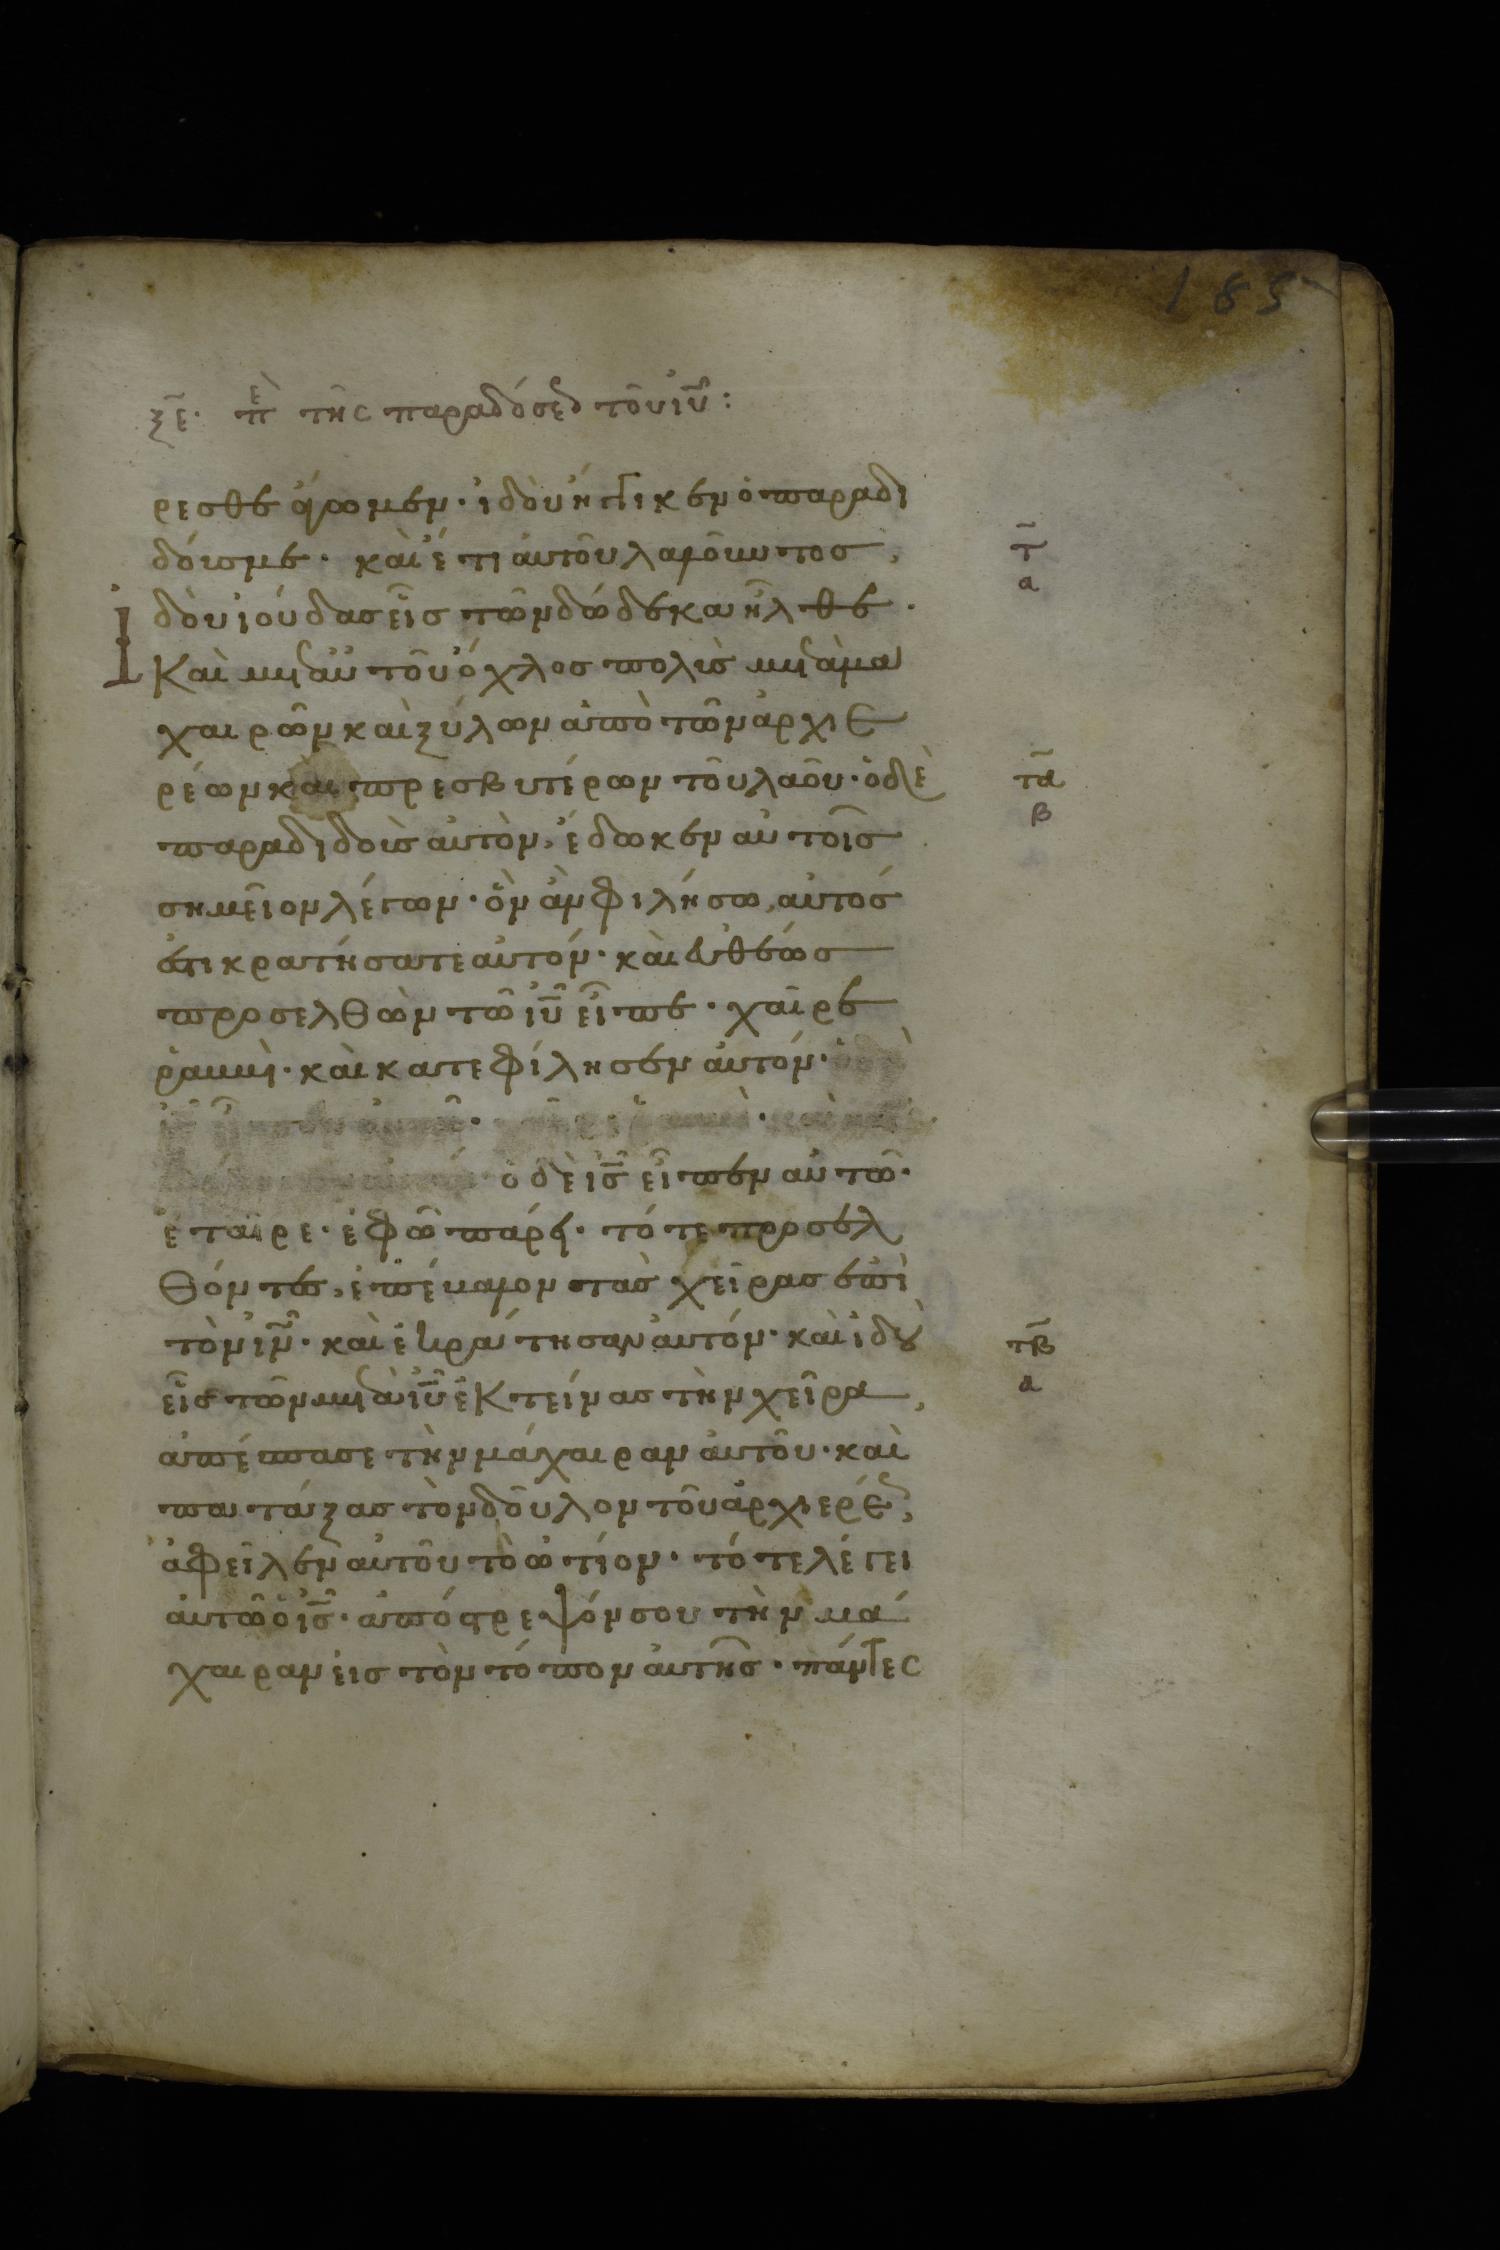 185
ξε· πε τῆς παραδόσεως τοῦ ιυ:
ρεσθε ἄγωμεν· ἰδοὺ ἤγγικεν ὁ παραδι
δούς με· καὶ ἔτι αὐτοῦ λαλοῦντος,
τ
α
Ιδοὺ ἰούδας εἷς τῶν δώδεκα ἦλθε·
Καὶ μετ αὐτοῦ ὄχλος πολὺς μετὰ μα
χαιρῶν καὶ ξύλων ἀπὸ τῶν ἀρχιε
ρέων καὶ πρεσβυτέρων τοῦ λαοῦ· ὁ δὲ
τα
β
παραδιδοὺς αὐτὸν, ἔδωκεν αὐτοῖς
σημεῖον λέγων· ὃν ἂν φιλήσω, αὐτός
ἐστι κρατήσατε αὐτόν· καὶ εὐθέως
προσελθὼν τῶ ιυ εἶπε· χαῖρε
ῥαββὶ· καὶ κατεφίλησεν αὐτόν·
ὁ δὲ ις εἶπεν αὐτῶ·
ἑταῖρε· ἐφ ὧ πάρει· τότε προσελ
θόντες, ἐπέβαλον τὰς χεῖρας ἐπὶ
τὸν ιν· καὶ ἐκράτησαν αὐτόν· καὶ ἰδοὺ
τβ
α
εἷς τῶν μετὰ ιυ ἐκτείνας τὴν χεῖρα,
ἀπέσπασε τὴν μάχαιραν αὐτοῦ· καὶ
πατάξας τὸν δοῦλον τοῦ ἀρχιερέως,
ἀφεῖλεν αὐτοῦ τὸ ὠτίον· τότε λέγει
αὐτῶ ὁ ις· ἀπόστρεψόν σου τὴν μά
χαιραν εἰς τὸν τόπον αὐτῆς· πάντες